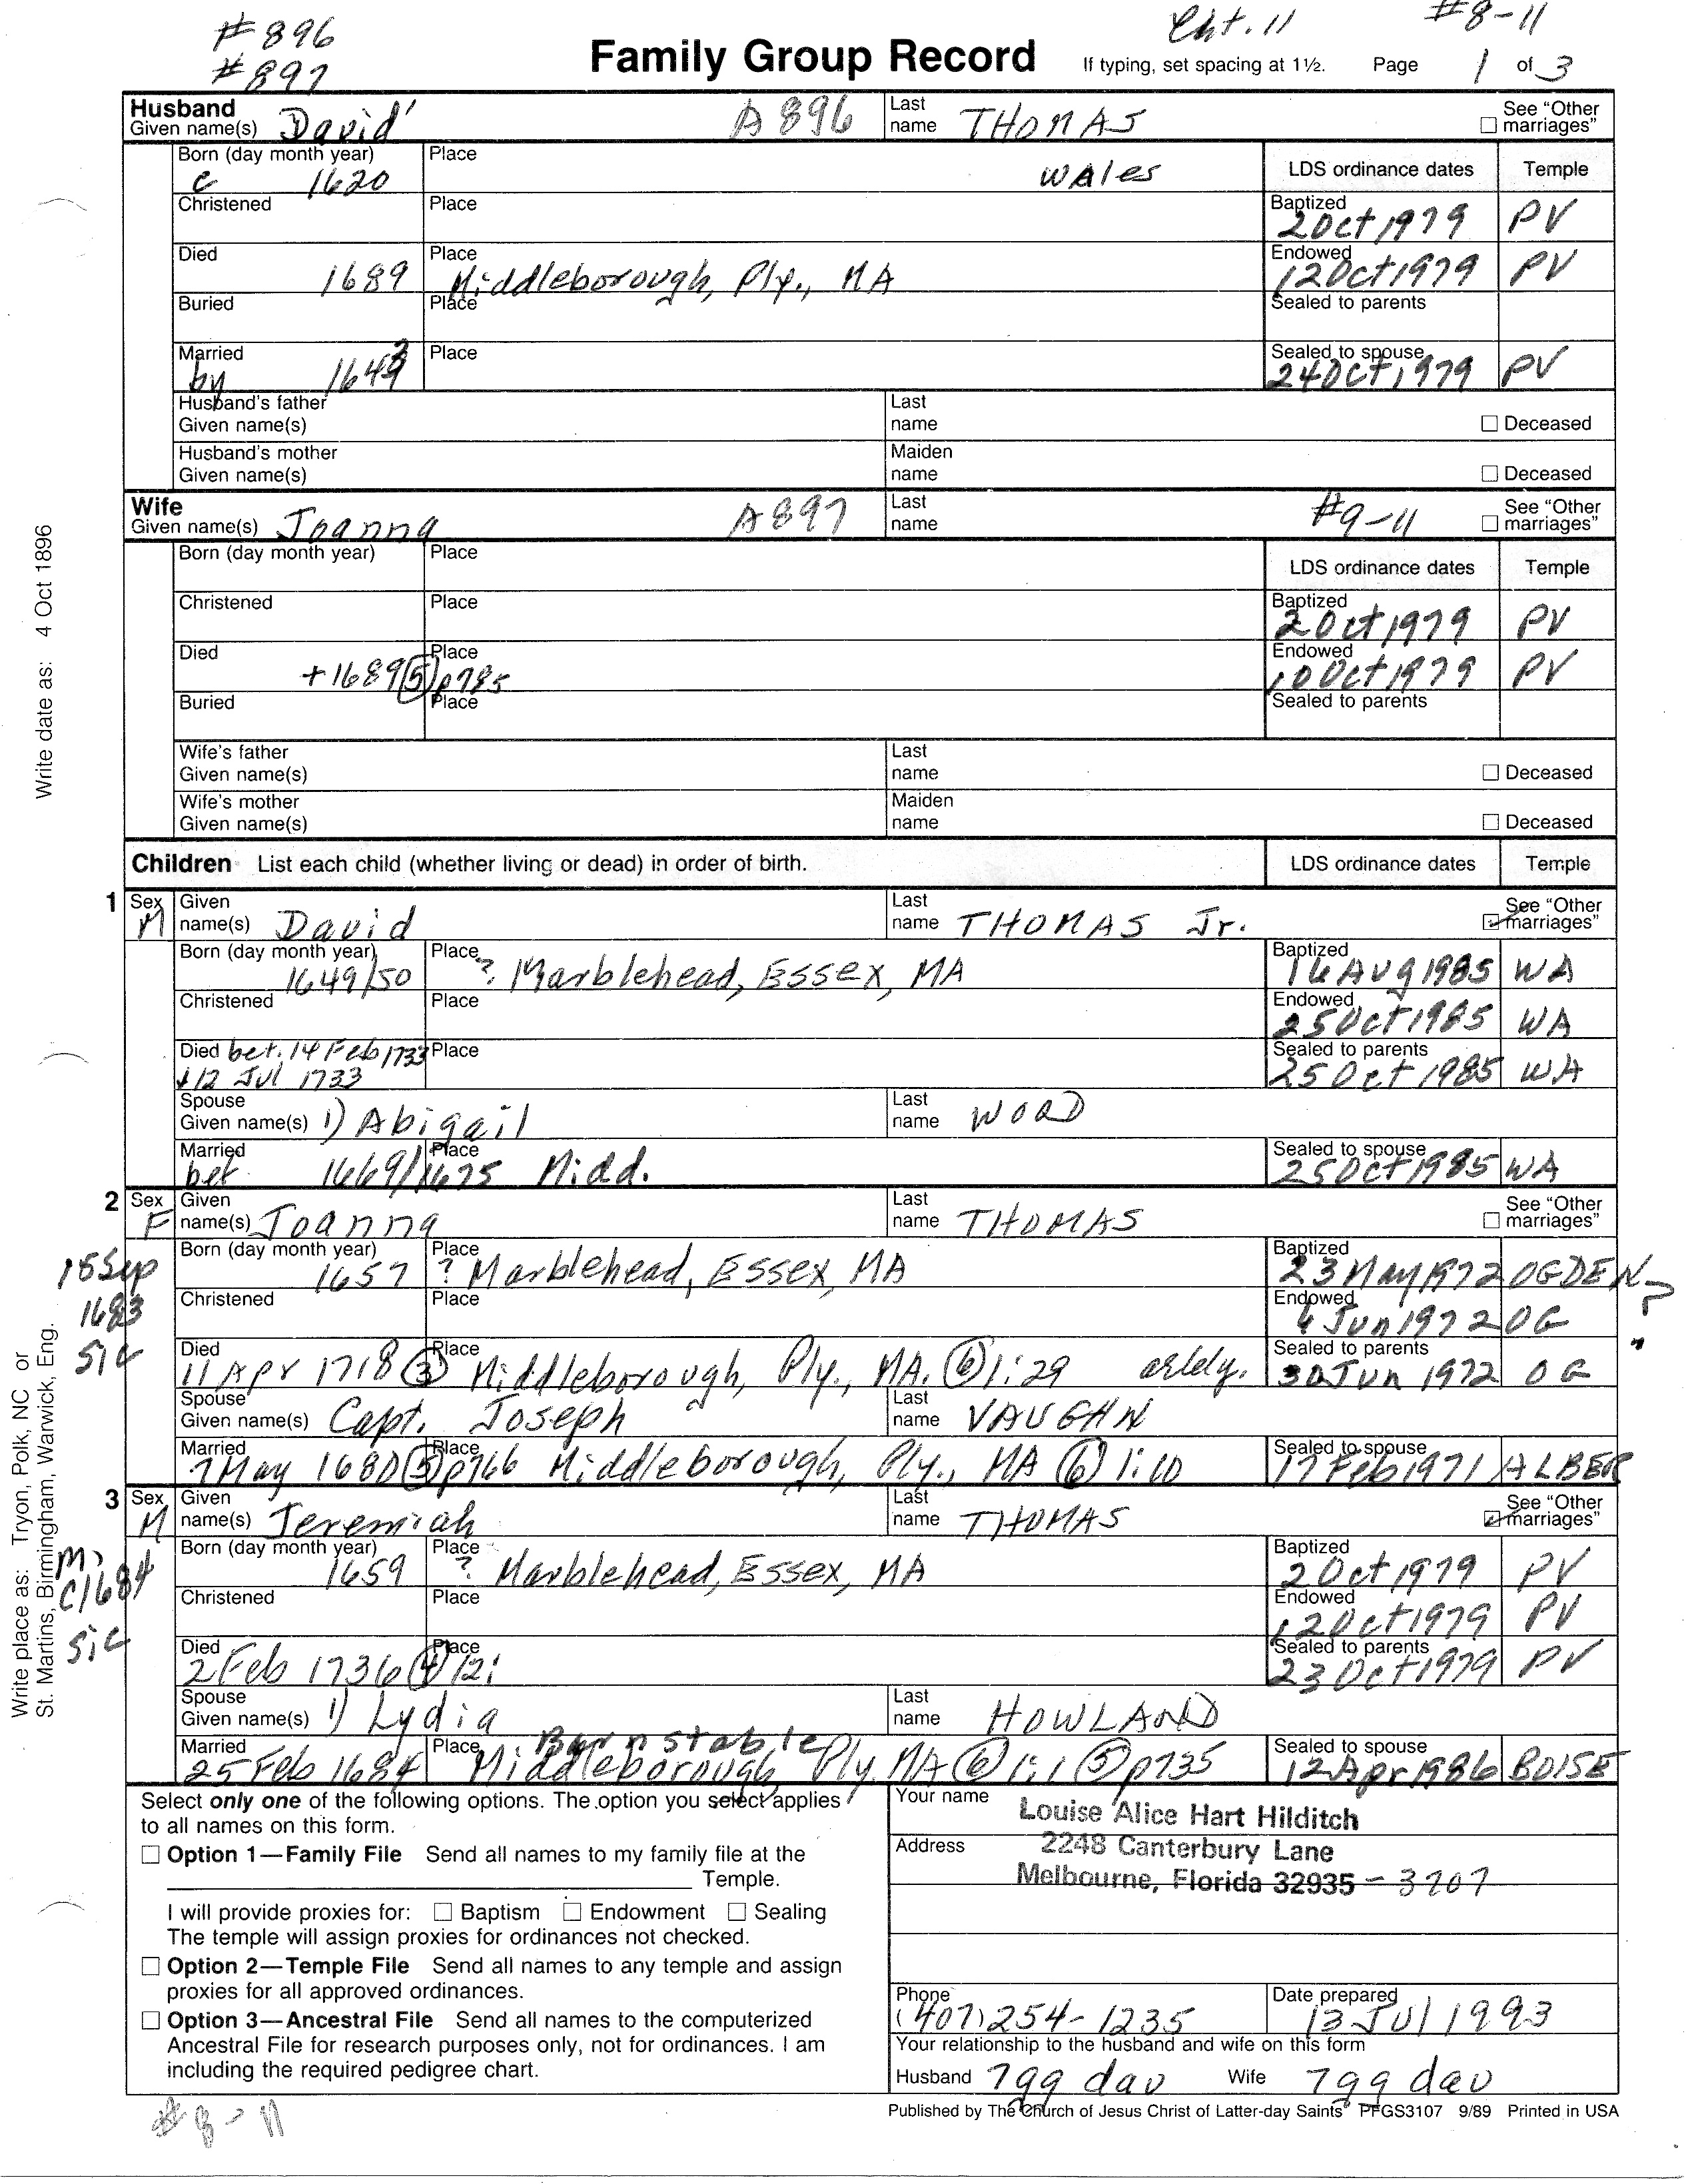 #896 Cht. 11 #8-11
#897 Family Group Record If typing, set spacing at 1½. Page 1 of 3
Husband Given name(s) David A896 Last name THOMAS See "Other marriages"
Born (day month year) c 1620 Place Wales LDS ordinance dates Temple
Christened Place Baptized 2 Oct 1979 PV
Died 1689 Place Middleborough, Ply., MA Endowed 12 Oct 1979 PV
Buried Place Sealed to parents
Married by 1649 Place Sealed to spouse 24 Oct 1979 PV
Husband's father Given name(s) Last name Deceased
Husband's mother Given name(s) Maiden name Deceased
Wife Given name(s) Joanna A897 Last name #9-11 See "Other marriages"
Born (day month year) Place LDS ordinance dates Temple
Christened Place Baptized 2 Oct 1979 PV
Died +1689 (5) p785 Place Endowed 10 Oct 1979 PV
Buried Place Sealed to parents
Wife's father Given name(s) Last name Deceased
Wife's mother Given name(s) Maiden name Deceased
Write date as: 4 Oct 1896
Children List each child (whether living or dead) in order of birth. LDS ordinance dates Temple
1 Sex M Given name(s) David Last name THOMAS Jr. See "Other marriages"
Born (day month year) 1649/50 Place ? Marblehead, Essex, MA Baptized 16 Aug 1985 WA
Christened Place Endowed 25 Oct 1985 WA
Died bet. 14 Feb 1733 + 12 Jul 1733 Place Sealed to parents 25 Oct 1985 WA
Spouse Given name(s) 1) Abigail Last name WOOD
Married bet 1669/1675 Place Midd. Sealed to spouse 25 Oct 1985 WA
2 Sex F Given name(s) Joanna Last name THOMAS See "Other marriages"
Born (day month year) 1657 Place ? Marblehead, Essex, MA Baptized 23 May 1972 OGDEN
Christened Place Endowed 6 Jun 1972 OG
Died 11 Apr 1718 (3) Place Middleborough, Ply., MA. (6) 1:29 Sealed to parents 30 Jun 1972 OG
Spouse Given name(s) Capt. Joseph Last name VAUGHN
Married 7 May 1680 (5) p766 Place Middleborough, Ply., MA (6) 1:10 Sealed to spouse 17 Feb 1971 ALBER
18 Sep
1683
sic
3 Sex M Given name(s) Jeremiah Last name THOMAS See "Other marriages"
Born (day month year) 1659 Place ? Marblehead, Essex, MA Baptized 2 Oct 1979 PV
Christened Place Endowed 12 Oct 1979 PV
Died 2 Feb 1736 (4) 12: Place Sealed to parents 23 Oct 1979 PV
Spouse Given name(s) 1) Lydia Last name HOWLAND
Barnstable
Married 25 Feb 1684 Place Middleborough, Ply. MA (6) 1:1 (5) p735 Sealed to spouse 12 Apr 1986 BOISE
m)
C1684
sic
Write place as: Tryon, Polk, NC or
St. Martins, Birmingham, Warwick, Eng.
Select only one of the following options. The option you select applies
to all names on this form.
Option 1—Family File Send all names to my family file at the
Temple.
I will provide proxies for: Baptism Endowment Sealing
The temple will assign proxies for ordinances not checked.
Option 2—Temple File Send all names to any temple and assign
proxies for all approved ordinances.
Option 3—Ancestral File Send all names to the computerized
Ancestral File for research purposes only, not for ordinances. I am
including the required pedigree chart.
Your name Louise Alice Hart Hilditch
Address 2248 Canterbury Lane
Melbourne, Florida 32935 - 3207
Phone (407) 254-1235 Date prepared 13 Jul 1993
Your relationship to the husband and wife on this form
Husband 7gg dau Wife 7gg dau
Published by The Church of Jesus Christ of Latter-day Saints PFGS3107 9/89 Printed in USA
#8-11